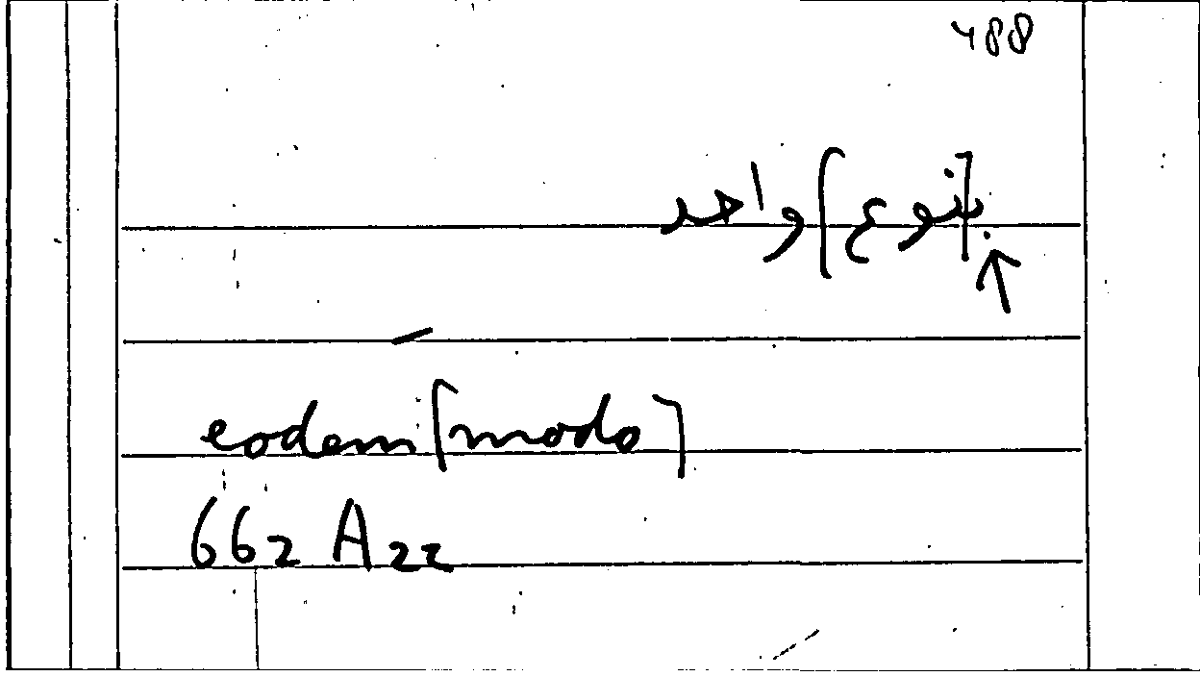 488
[بنوع] واحد
eodem [modo]
662 A 22